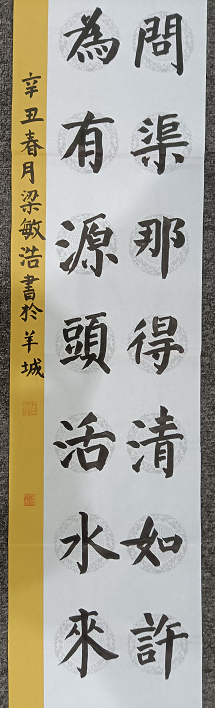 問渠那得清如許
為有源頭活水來
辛丑春月梁敏浩書於羊城